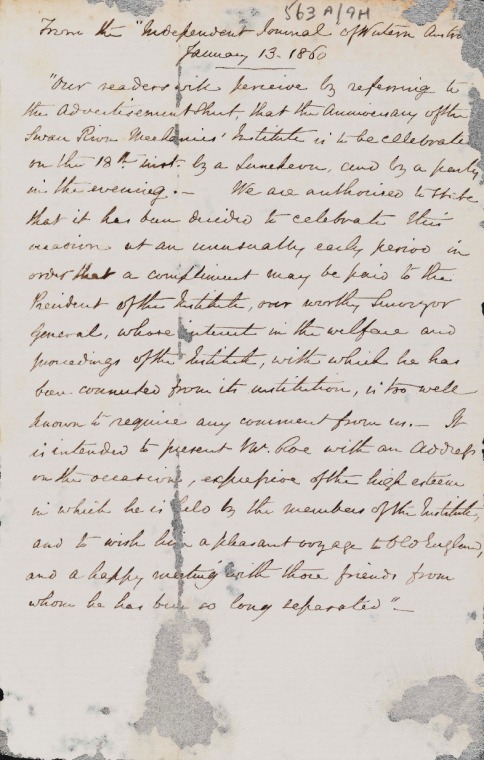 563A/9H
From the "Independent Journal of Western Austra
January 13. 1860
"Our readers will perceive by referring to
the Advertisement Sheet, that the Anniversary of the
Swan River Mechanics' Institute is to be celebrated
on the 18th inst. by a Luncheon, and by a party
in the evening. — We are authorised to state
that it has been decided to celebrate this
occasion at an unusually early period in
order that a compliment may be paid to the
President of the Institute, our worthy Surveyor
General, whose interest in the welfare and
proceedings of the Institute, with which he has
been connected from its institution, is too well
known to require any comment from us. — It
is intended to present Mr. Roe with an Address
on the occasion, expressive of the high esteem
in which he is held by the members of the Institute,
and to wish him a pleasant voyage to Old England,
and a happy meeting with those friends from
whom he has been so long separated". —